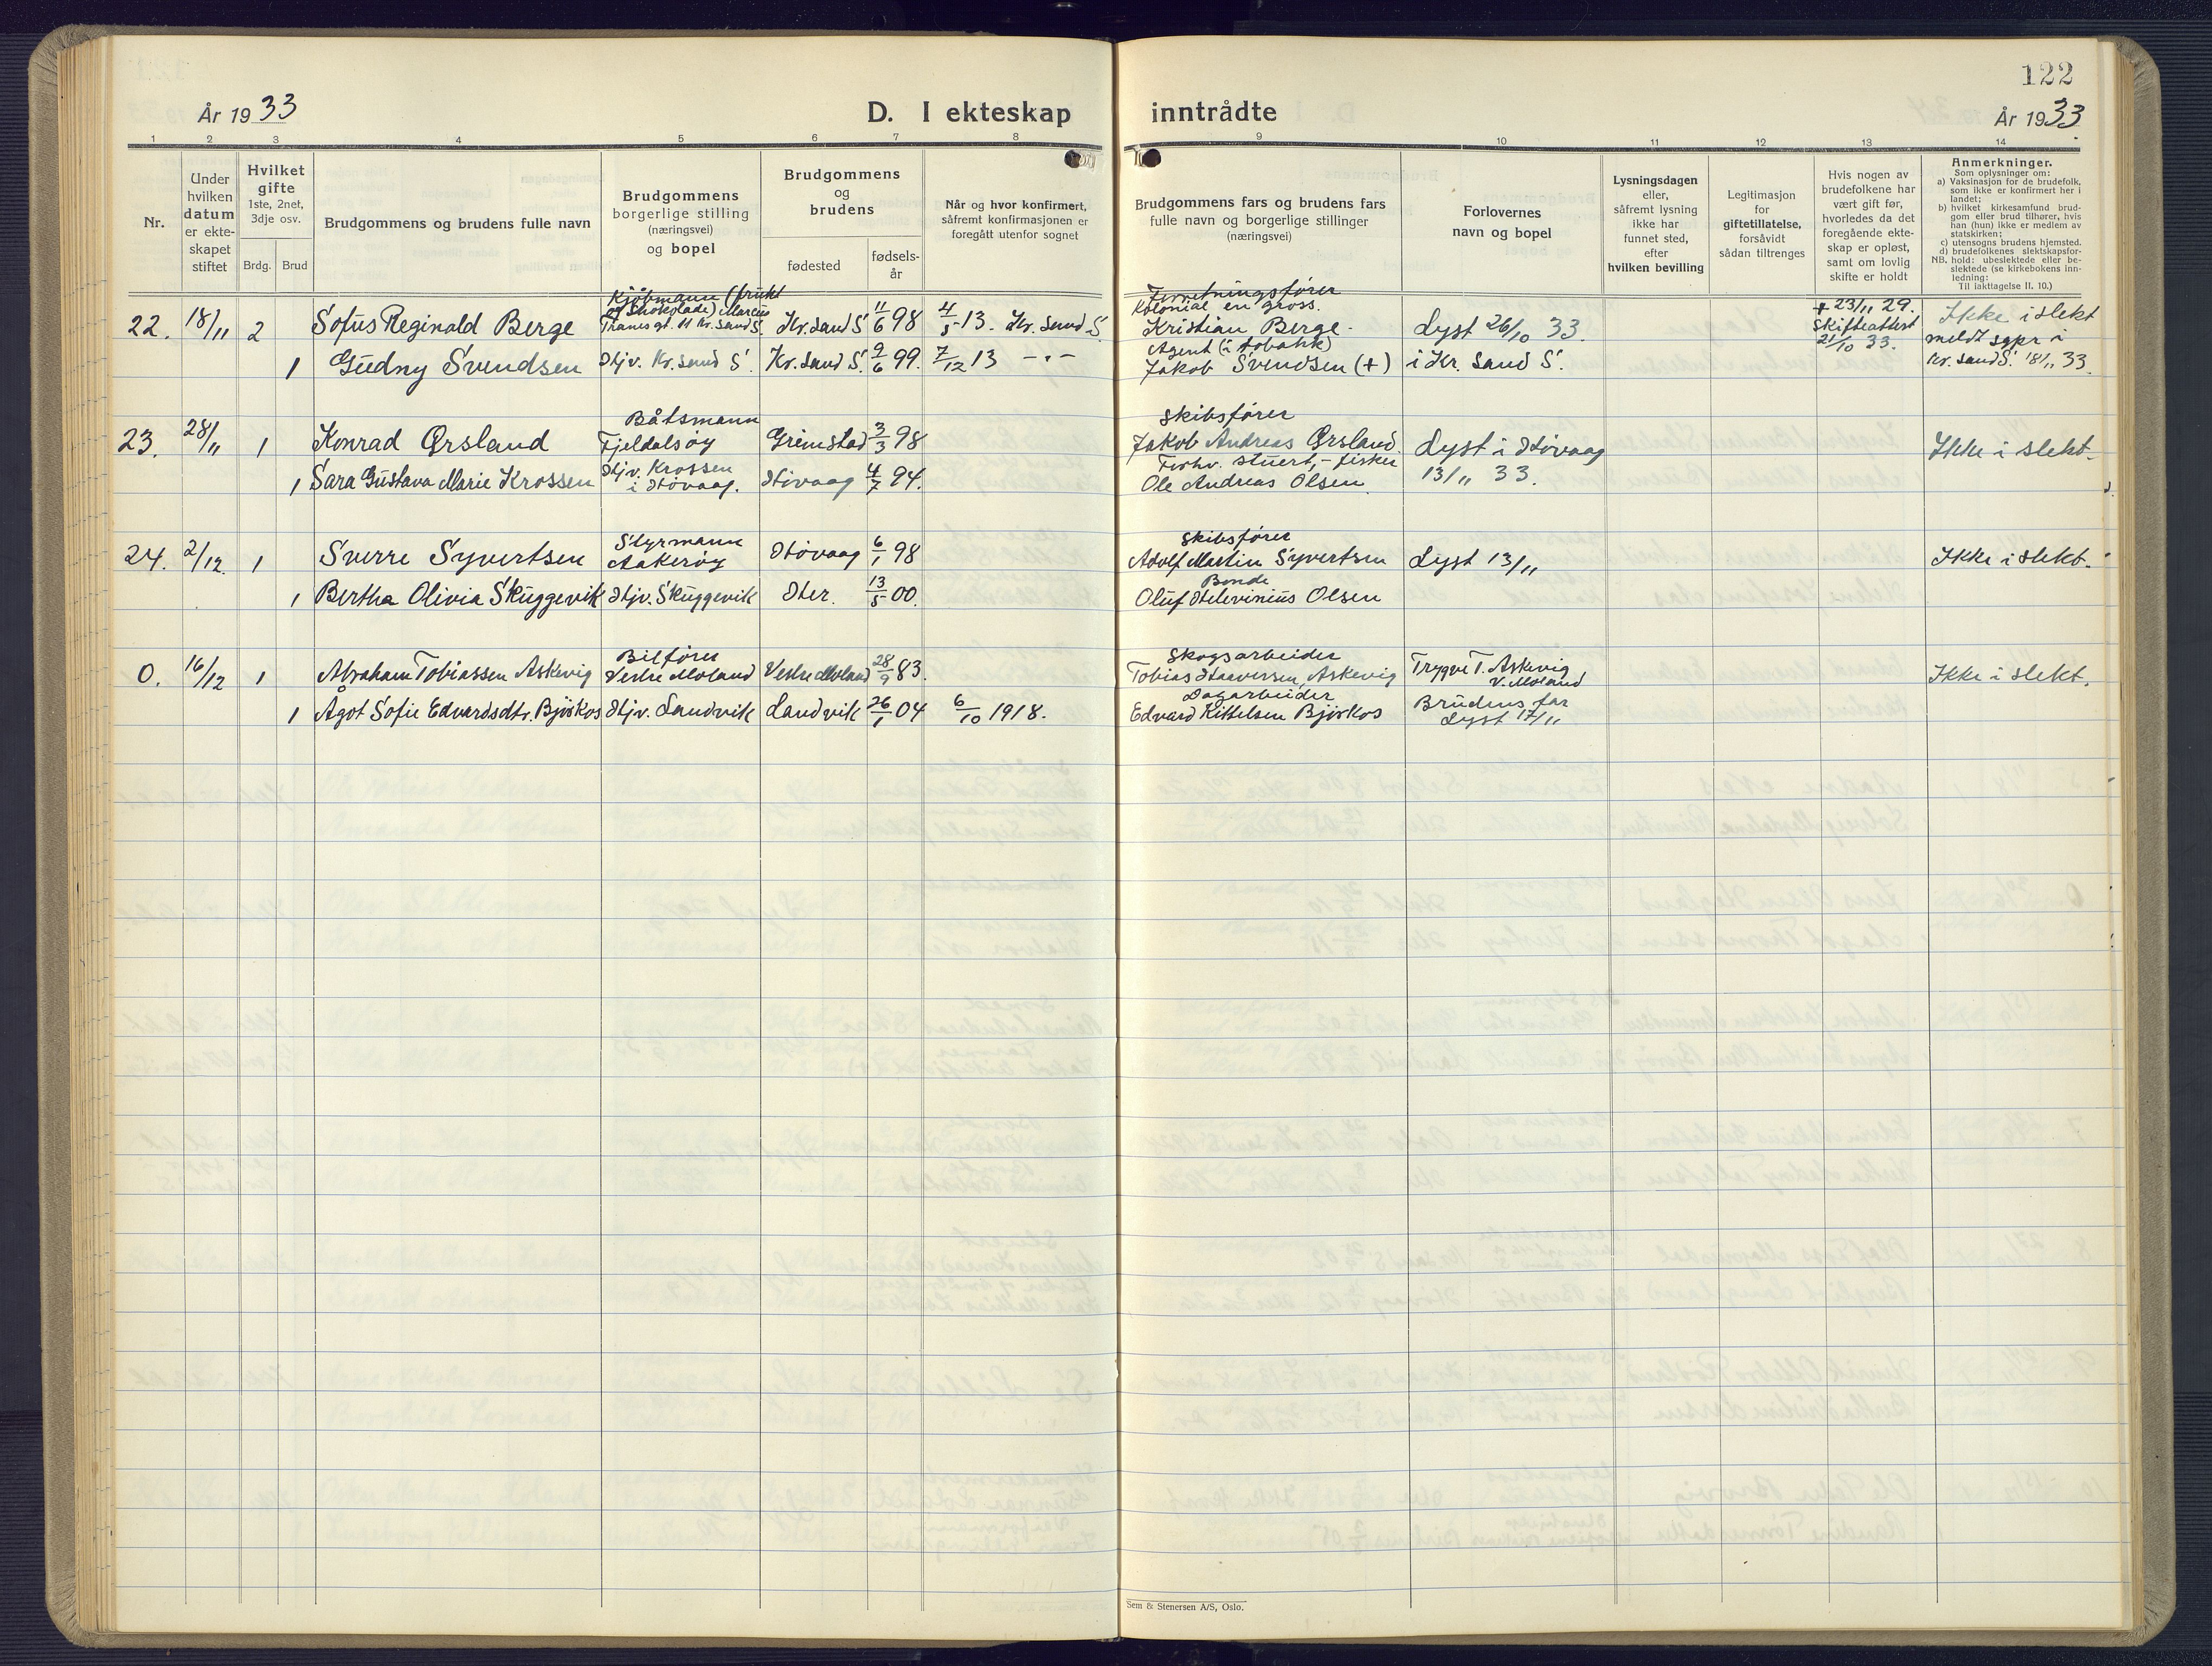 122
År 1933
D. I ekteskap inntrådte
År 1933
1 2 3 4 5 6 7 8 9 10 11 12 13 14
Nr.
Under hvilken datum er ekteskapet stiftet
Hvilket gifte 1ste, 2net, 3dje osv.
Brdg. Brud
Brudgommens og brudens fulle navn
Brudgommens borgerlige stilling (næringsvei) og bopel
Brudgommens og brudens
fødested
fødselsår
Når og hvor konfirmert, såfremt konfirmasjonen er foregått utenfor sognet
Brudgommens fars og brudens fars fulle navn og borgerlige stillinger (næringsvei)
Forlovernes navn og bopel
Lysningsdagen eller, såfremt lysning ikke har funnet sted, efter hvilken bevilling
Legitimasjon for giftetillatelse, forsåvidt sådan tiltrenges
Hvis nogen av brudefolkene har vært gift før, hvorledes da det foregående ekteskap er opløst, samt om lovlig skifte er holdt
Anmerkninger.
Som oplysninger om:
a) Vaksinasjon for de brudefolk, som ikke er konfirmert her i landet;
b) hvilket kirkesamfund brudgom eller brud tilhører, hvis han (hun) ikke er medlem av statskirken;
c) utensogns brudens hjemsted.
d) brudefolkenes slektskapsforhold: ubeslektede eller beslektede (se kirkebokens innledning:
NB.
Til iakttagelse II. 10.)
Kjøbmann (frukt
og Shokolade) Marcus
Forretningsfører
Kolonial en gross.
+ 23/11 29.
22. 18/11 2 Sofus Reginald Berge Thranes gt. 11 Kr. sand S. Kr. Sand S 11/6 98 4/5 13. Kr. Sand S. Kristian Berge. Lyst 26/10 33. Skifteattest 21/10 33. Ikke i slekt
Agent (i tobakk)
meldt sspr i
1 Gudny Svendsen Hjv. Kr. Sand S. Kr. Sand S. 9/6 99. 7/12 13 -"- Jakob Svendsen (+) i Kr. Sand S. Kr. Sand S. 18/11 33.
Båtsmann
Skibsfører
23. 28/11 1 Konrad Ørsland Fjeldalsøy Grimstad 3/3 98 Jakob Andreas Ørsland. Lyst i Høvaag Ikke i slekt.
Hjv. Krossen
Forhv. stuert, - fisker
1 Sara Gustava Marie Krossen i Høvaag. Høvaag 4/7 94. Ole Andreas Olsen 13/11 33.
Styrmann
Skibsfører
24. 2/12. 1 Sverre Syvertsen Aakerøy Høvaag 6/1 98 Adolf Martin Syvertsen Lyst 13/11 Ikke i slekt.
Bonde
1 Bertha Olivia Skuggevik Hjv. Skuggevik Her. 13/5 00. Oluf Helevinius Olsen
Bilfører
Skogsarbeider
0. 16/12 1 Abraham Tobiassen Askevig Vestre Moland Vestre Moland 28/9 83. Tobias Haaversen, Askevig Trygve T. Askevig V. Moland Ikke i slekt.
Dagarbeider
1 Ågot Sofie Edvardsdtr. Bjørkos Hjv. Landvik Landvik 26/1 04 6/10 1918. Edvard Kittelsen Bjørkos Brudens far
Lyst 17/11
Sem & Stenersen A/S, Oslo.